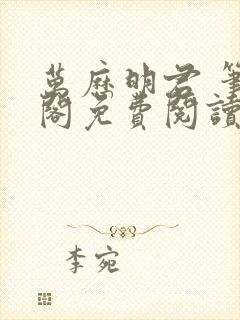 萬歷明君 筆
閣免費閱讀
李宛